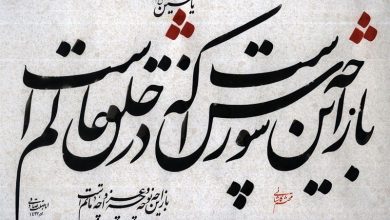 یا حسین
باز این چه شورش است که در خلق عالم است
باز این چه نوحه و چه عزا و چه ماتم است